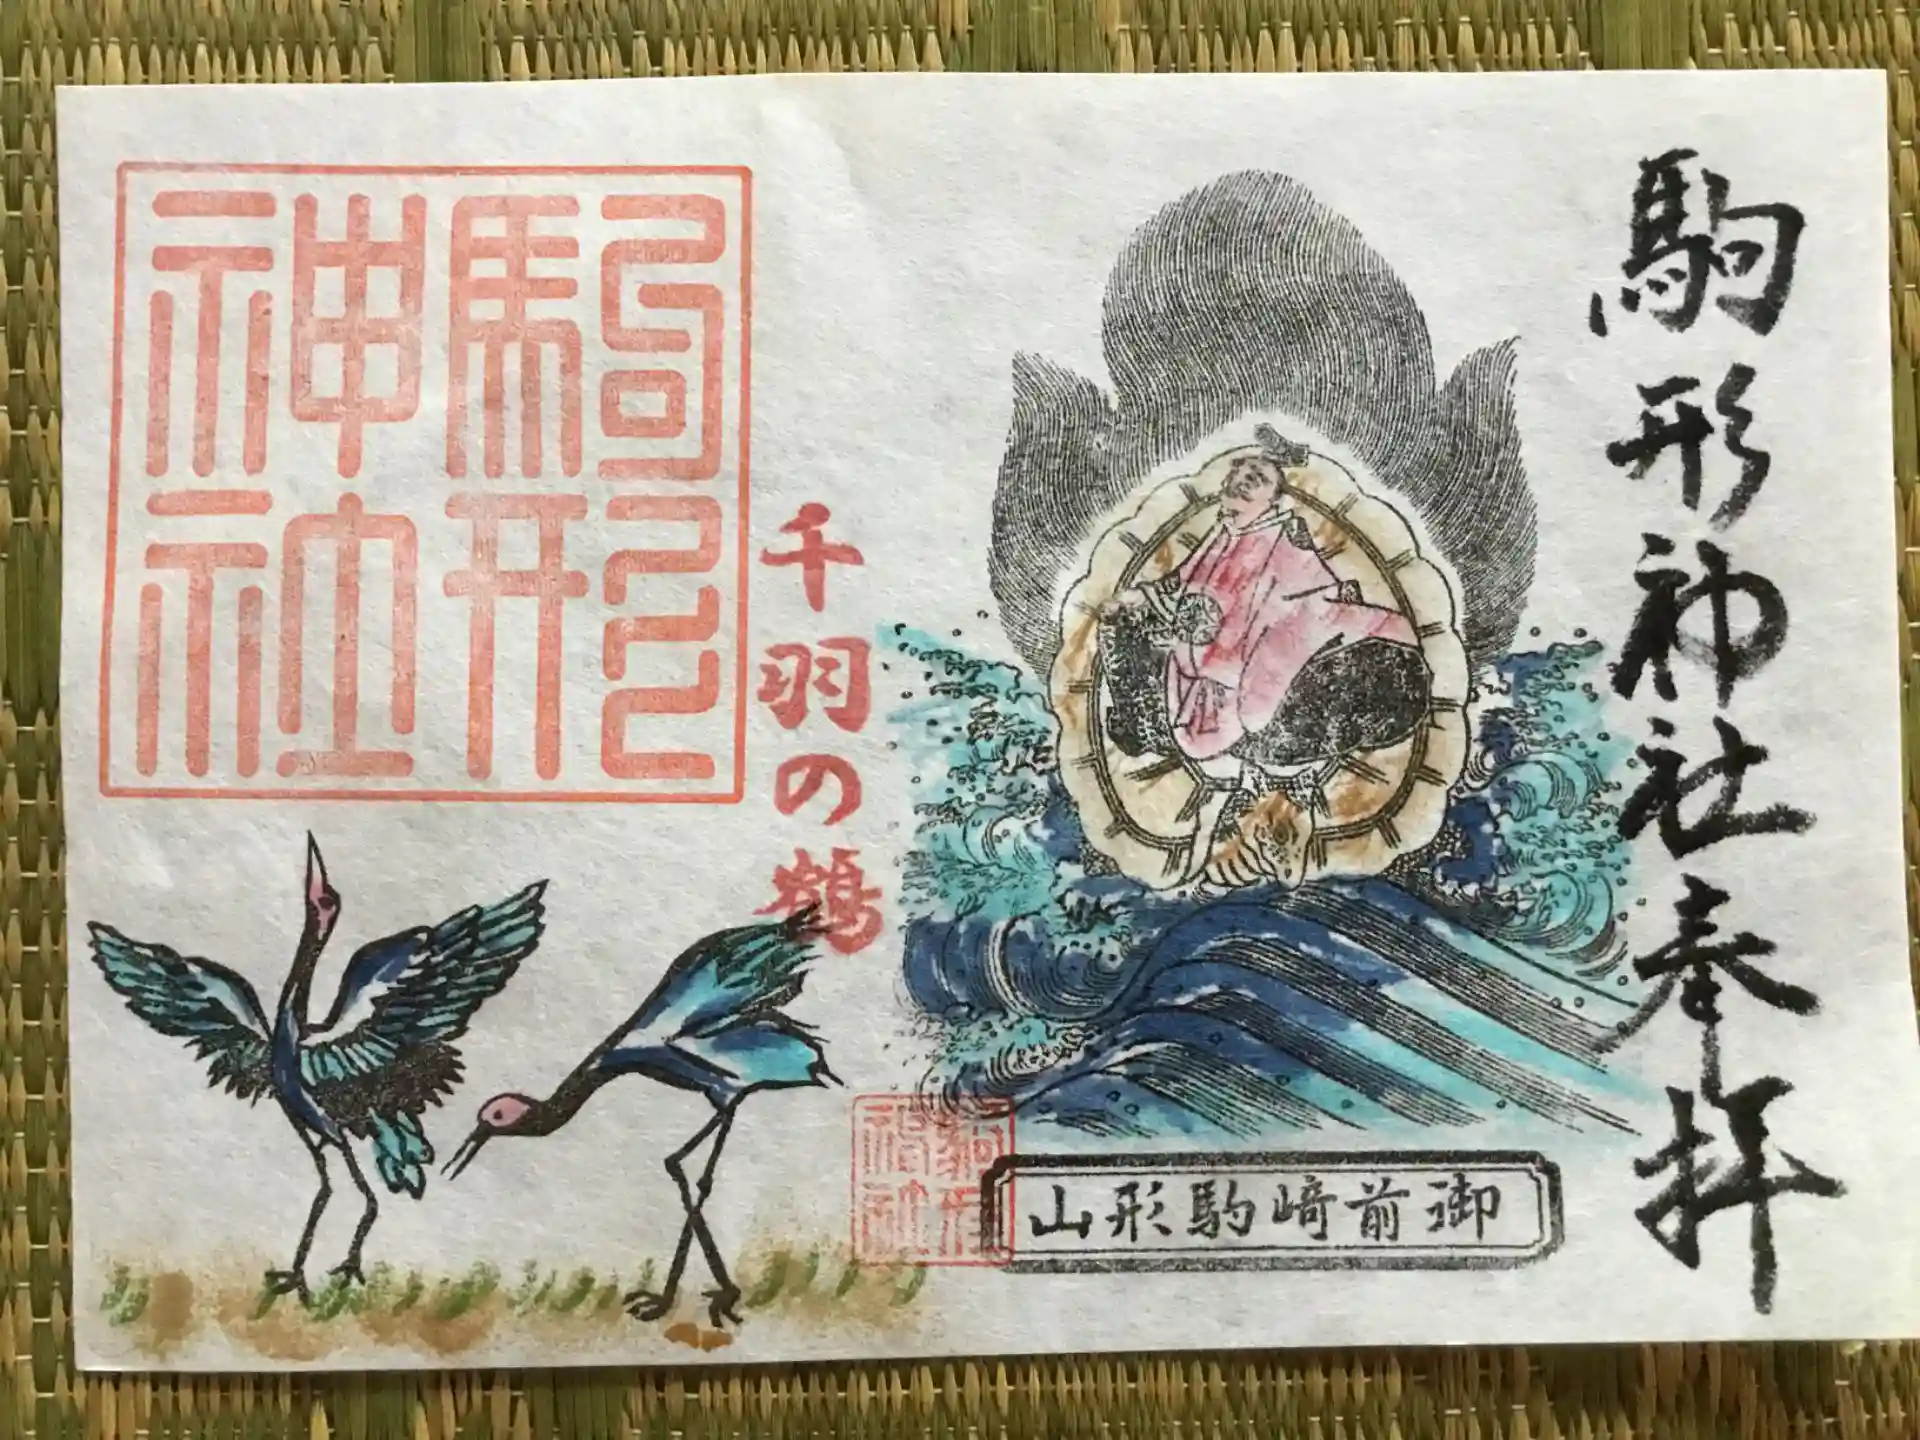 駒形神社奉拝
御前﨑駒形山
千羽の鶴
駒形
神社
駒形
神社